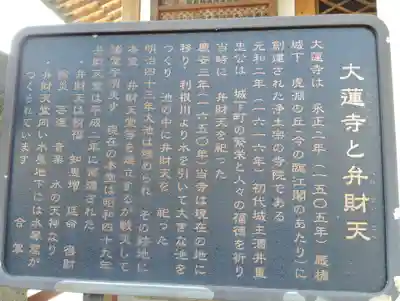 大蓮寺と弁財天
大蓮寺は 永正二年(一五〇五年)厩橋
城下 虎淵の丘(今の臨江閣のあたり)に
創建された浄土宗の寺院である
元和二年(一六一六年)初代城主酒井重
忠公は 城下町の繁栄と人々の福徳を祈り
当時に 弁財天を祀った
慶安三年(一六五〇年)当寺は現在の地に
移り 利根川より水を引いて大きな池を
つくり 池の中に弁財天を 祀った
明治四十三年大池は埋められ その跡地に
本堂 弁財天堂等を建立するが戦災して
諸堂宇 現在の本堂は昭和四十九年
弁財天堂は平成二年に再建された
・弁財天は福徳 知恵増 延命 福財
除災 音楽 水の天神なり
・弁財天堂向い水屋地下には水琴窟が
つくられています
合掌